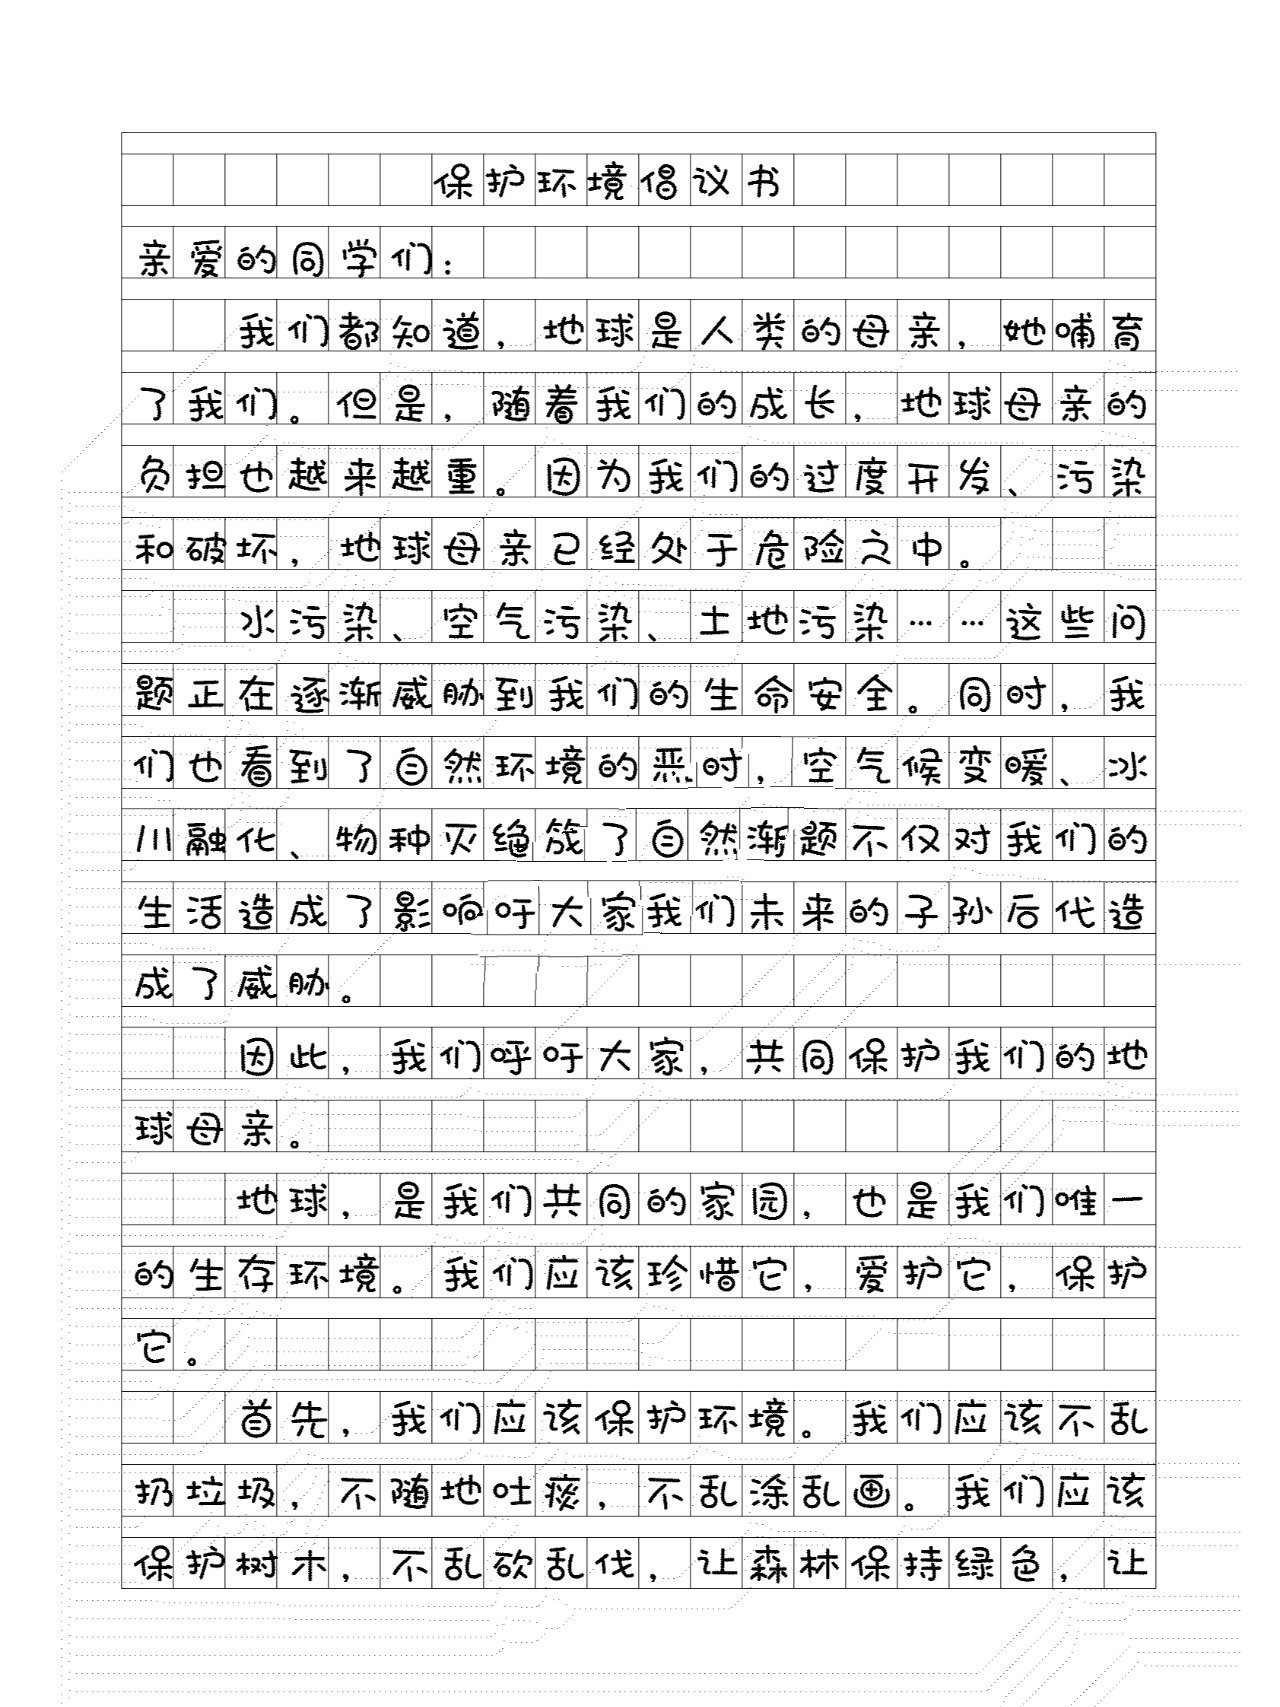 保护环境倡议书
亲爱的同学们：
我们都知道，地球是人类的母亲，她哺育
了我们。但是，随着我们的成长，地球母亲的
负担也越来越重。因为我们的过度开发、污染
和破坏，地球母亲已经处于危险之中。
水污染、空气污染、土地污染……这些问
题正在逐渐威胁到我们的生命安全。同时，我
们也看到了自然环境的恶时，空气候变暖、冰
川融化、物种灭绝筑了自然渐题不仅对我们的
生活造成了影响吁大家我们未来的子孙后代造
成了威胁。
因此，我们呼吁大家，共同保护我们的地
球母亲。
地球，是我们共同的家园，也是我们唯一
的生存环境。我们应该珍惜它，爱护它，保护
它。
首先，我们应该保护环境。我们应该不乱
扔垃圾，不随地吐痰，不乱涂乱画。我们应该
保护树木，不乱砍乱伐，让森林保持绿色，让